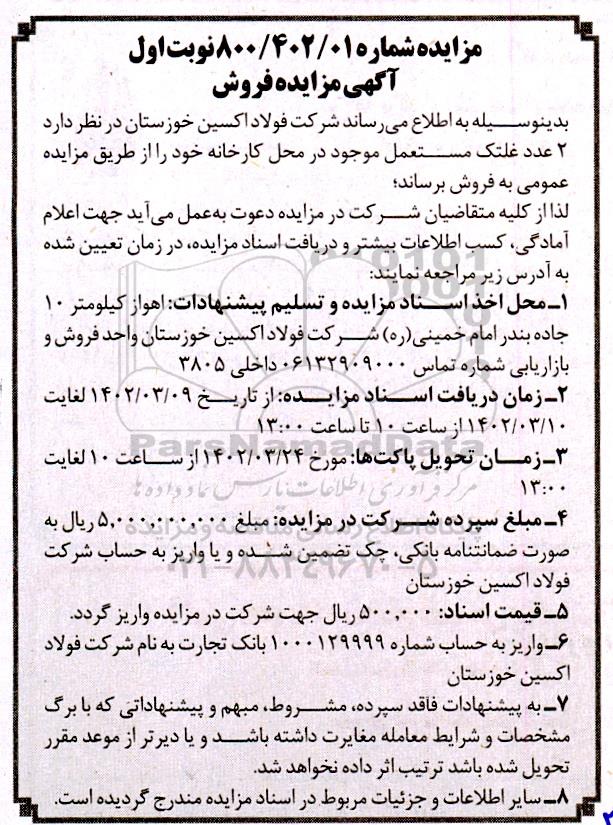 مزایده شماره ۸۰۰/۴۰۲/۰۱ نوبت اول
آگهی مزایده فروش
بدینوسیله به اطلاع می‌رساند شرکت فولاد اکسین خوزستان در نظر دارد
۲ عدد غلتک مستعمل موجود در محل کارخانه خود را از طریق مزایده
عمومی به فروش برساند؛
لذا از کلیه متقاضیان شرکت در مزایده دعوت به‌عمل می‌آید جهت اعلام
آمادگی، کسب اطلاعات بیشتر و دریافت اسناد مزایده، در زمان تعیین شده
به آدرس زیر مراجعه نمایند:
۱ـ محل اخذ اسناد مزایده و تسلیم پیشنهادات: اهواز کیلومتر ۱۰
جاده بندر امام خمینی(ره) شرکت فولاد اکسین خوزستان واحد فروش و
بازاریابی شماره تماس ۰۶۱۳۲۹۰۹۰۰۰ داخلی ۳۸۰۵
۲ـ زمان دریافت اسناد مزایده: از تاریخ ۱۴۰۲/۰۳/۰۹ لغایت
۱۴۰۲/۰۳/۱۰ از ساعت ۱۰ تا ساعت ۱۳:۰۰
۳ـ زمان تحویل پاکت‌ها: مورخ ۱۴۰۲/۰۳/۲۴ از ساعت ۱۰ لغایت
۱۳:۰۰
۴ـ مبلغ سپرده شرکت در مزایده: مبلغ ۵,۰۰۰,۰۰۰,۰۰۰ ریال به
صورت ضمانتنامه بانکی، چک تضمین شده و یا واریز به حساب شرکت
فولاد اکسین خوزستان
۵ـ قیمت اسناد: ۵۰۰,۰۰۰ ریال جهت شرکت در مزایده واریز گردد.
۶ـ واریز به حساب شماره ۱۰۰۰۱۲۹۹۹۹ بانک تجارت به نام شرکت فولاد
اکسین خوزستان
۷ـ به پیشنهادات فاقد سپرده، مشروط، مبهم و پیشنهاداتی که با برگ
مشخصات و شرایط معامله مغایرت داشته باشد و یا دیرتر از موعد مقرر
تحویل شده باشد ترتیب اثر داده نخواهد شد.
۸ـ سایر اطلاعات و جزئیات مربوط در اسناد مزایده مندرج گردیده است.
ParsNamadData
مرکز فرآوری اطلاعات پارس نماد داده‌ها
۰۲۱-۸۸۳۴۹۶۷۰-۵